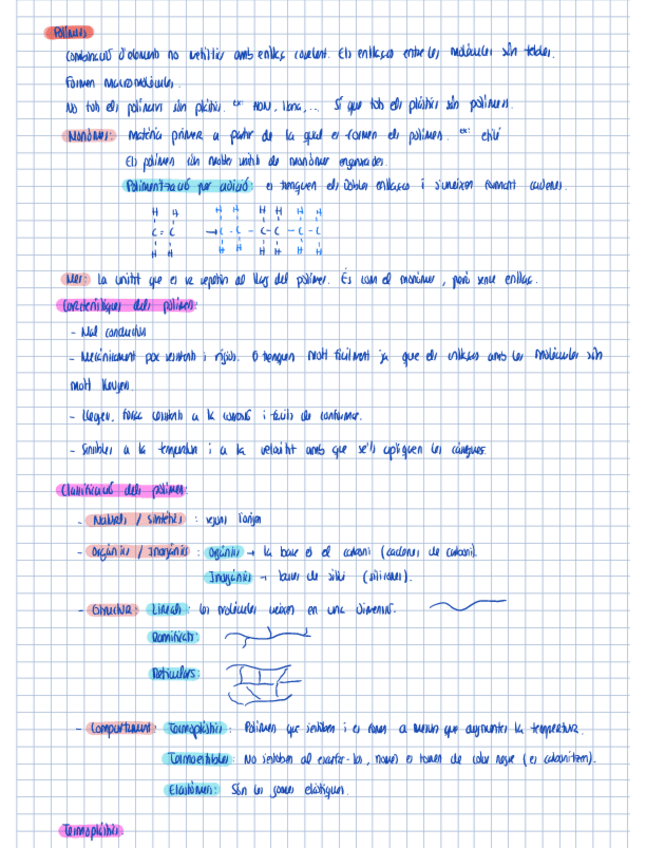 Polímers
Combinació d'elements no metàl·lics amb enllaç covalent. Els enllaços entre les molècules són febles.
Formen macromolècules.
No tots els polímers són plàstics. ex: ADN, llana,... Sí que tots els plàstics són polímers.
Monòmer: matèria primera a partir de la qual es formen els polímers. ex: etilè
Els polímers són moltes unitats de monòmer enganxades.
Polimerització per adició: es trenquen els dobles enllaços i s'uneixen formant cadenes.
H H H H H H H H
C = C → C - C - C - C - C - C
H H H H H H H H
Mer: la unitat que es va repetint al llarg del polímer. És com el monòmer, però sense enllaç.
Característiques dels polímers:
- Mal conductors
- Mecànicament poc resistents i rígids. Es trenquen molt fàcilment ja que els enllaços amb les molècules són
molt lleugers.
- Lleugers, força resistents a la corrosió i fàcils de conformar.
- Sensibles a la temperatura i a la velocitat amb que se'ls apliquen les càrregues.
Classificació dels polímers:
- Naturals / sintètics : segons l'origen
- Orgànics / Inorgànics : Orgànics → la base és el carboni (cadenes de carboni).
Inorgànics → bases de silici (silicones).
- Estructura: Lineals: les molècules creixen en una dimensió.
Ramificats:
Reticulars:
- Comportament: Termoplàstics: Polímers que s'estoven i es fonen a mesura que augmentes la temperatura.
Termoestables: No s'estoven al escalfar-los, només es tornen de color negre (es carbonitzen).
Elastòmers: Són les gomes elàstiques.
Termoplàstics: